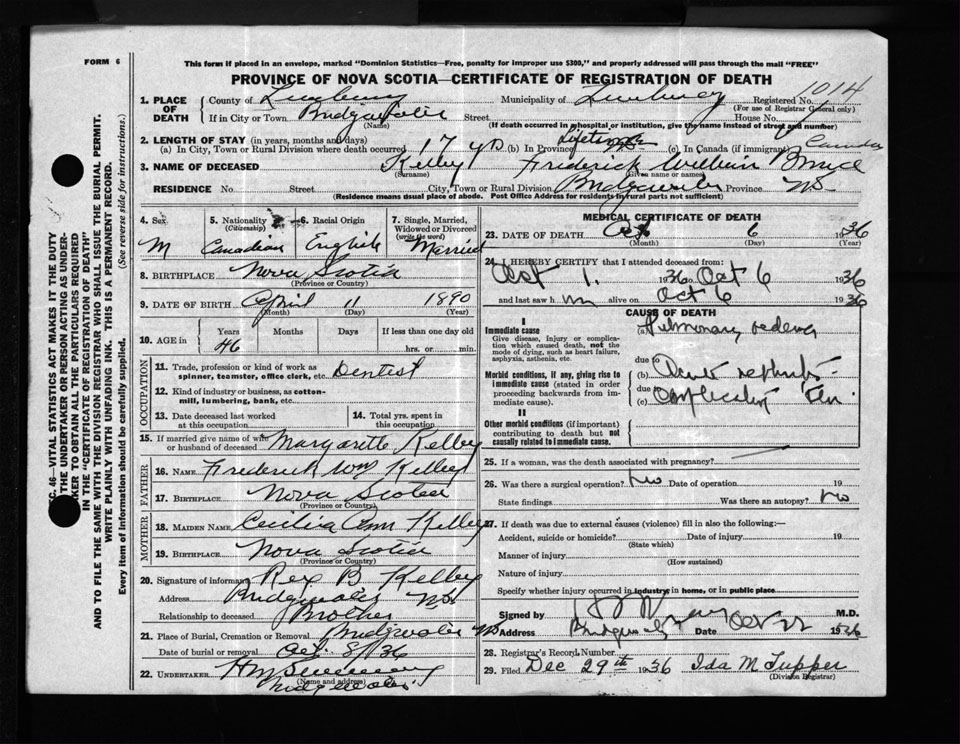 FORM 6
This form if placed in an envelope, marked "Dominion Statistics—Free, penalty for improper use $300," and properly addressed will pass through the mail "FREE"
PROVINCE OF NOVA SCOTIA—CERTIFICATE OF REGISTRATION OF DEATH
1. PLACE OF DEATH { County of Lunenburg Municipality of Lunenburg Registered No. 1014
(For use of Registrar General only)
If in City or Town Bridgewater Street House No.
(Name) (If death occurred in hospital or institution, give the name instead of street and number)
2. LENGTH OF STAY (in years, months and days)
(a) In City, Town or Rural Division where death occurred 17 yrs (b) In Province Lifetime (c) In Canada (if immigrant) Canada
3. NAME OF DECEASED Kelley Frederick William Bruce
(Surname) (Given name or names)
RESIDENCE No. Street City, Town or Rural Division Bridgewater Province NS
(Residence means usual place of abode. Post Office Address for residents in rural parts not sufficient)
4. Sex 5. Nationality (Citizenship) 6. Racial Origin 7. Single, Married, Widowed or Divorced (write the word)
M Canadian English Married
8. BIRTHPLACE Nova Scotia
(Province or Country)
9. DATE OF BIRTH April 11 1890
(Month) (Day) (Year)
10. AGE in { Years Months Days If less than one day old
46 hrs. or min.
OCCUPATION
11. Trade, profession or kind of work as spinner, teamster, office clerk, etc. Dentist
12. Kind of industry or business, as cotton-mill, lumbering, bank, etc.
13. Date deceased last worked at this occupation
14. Total yrs. spent in this occupation
15. If married give name of wife or husband of deceased Margarette Kelley
FATHER
16. NAME Frederick Wm Kelley
17. BIRTHPLACE Nova Scotia
(Province or Country)
MOTHER
18. MAIDEN NAME Cecilia Ann Kelley
19. BIRTHPLACE Nova Scotia
(Province or Country)
20. Signature of informant Rex B Kelley
Address Bridgewater NS
Relationship to deceased Brother
21. Place of Burial, Cremation or Removal Bridgewater NS
Date of burial or removal Oct. 8/36
22. UNDERTAKER
(Name and address)
Bridgewater
MEDICAL CERTIFICATE OF DEATH
23. DATE OF DEATH Oct 6 1936
(Month) (Day) (Year)
24. I HEREBY CERTIFY that I attended deceased from:
Oct 1. 1936 to Oct 6 1936
and last saw h im alive on Oct 6 1936
CAUSE OF DEATH
I
Immediate cause (a) Pulmonary oedema
Give disease, injury or complication which caused death, not the mode of dying, such as heart failure, asphyxia, asthenia, etc.
due to
Morbid conditions, if any, giving rise to immediate cause (stated in order proceeding backwards from immediate cause). (b) Acute nephritis-
due to
(c) complicating
II
Other morbid conditions (if important) contributing to death but not causally related to immediate cause.
25. If a woman, was the death associated with pregnancy?
26. Was there a surgical operation? No Date of operation 19
State findings Was there an autopsy? No
27. If death was due to external causes (violence) fill in also the following:—
Accident, suicide or homicide? Date of injury 19
(State which)
Manner of injury
(How sustained)
Nature of injury
Specify whether injury occurred in industry, in home, or in public place
Signed by M.D.
Address Bridgewater Date Oct 22 1936
28. Registrar's Record Number
29. Filed Dec 29th 1936 Ida M Tupper
(Division Registrar)
SEC. 46—VITAL STATISTICS ACT MAKES IT THE DUTY
THE UNDERTAKER OR PERSON ACTING AS UNDER-
TAKER TO OBTAIN ALL THE PARTICULARS REQUIRED
IN THE "CERTIFICATE OF REGISTRATION OF DEATH"
AND TO FILE THE SAME WITH THE DIVISION REGISTRAR WHO SHALL ISSUE THE BURIAL PERMIT.
WRITE PLAINLY WITH UNFADING INK. THIS IS A PERMANENT RECORD.
Every item of information should be carefully supplied. (See reverse side for instructions.)